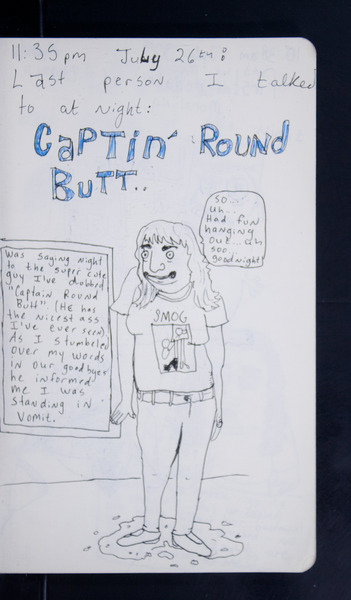 11:35pm July 26th:
Last person I talked
to at night:
CAPTin' ROUND
BUTT..
SO...
uh...
Had fun
hanging
out...uh
soo
goodnight!
Was saying night
to the super cute
guy I've dubbed
"Captain Round
Butt" (HE has
the nicest ass
I've ever seen)
As I stumbled
over my words
in our goodbyes
he informed
me I was
standing in
vomit.
SMOG